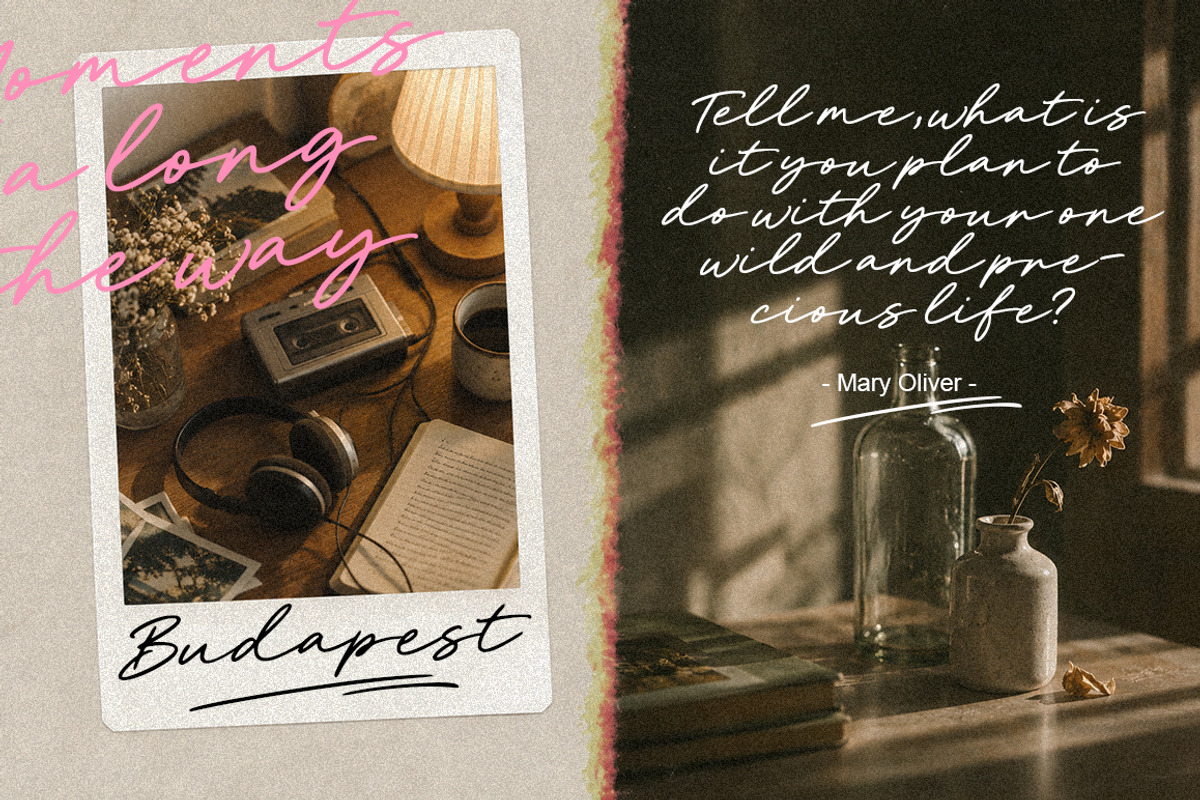 Moments
a long
the way
Budapest
Tell me, what is
it you plan to
do with your one
wild and pre-
cious life?
- Mary Oliver -